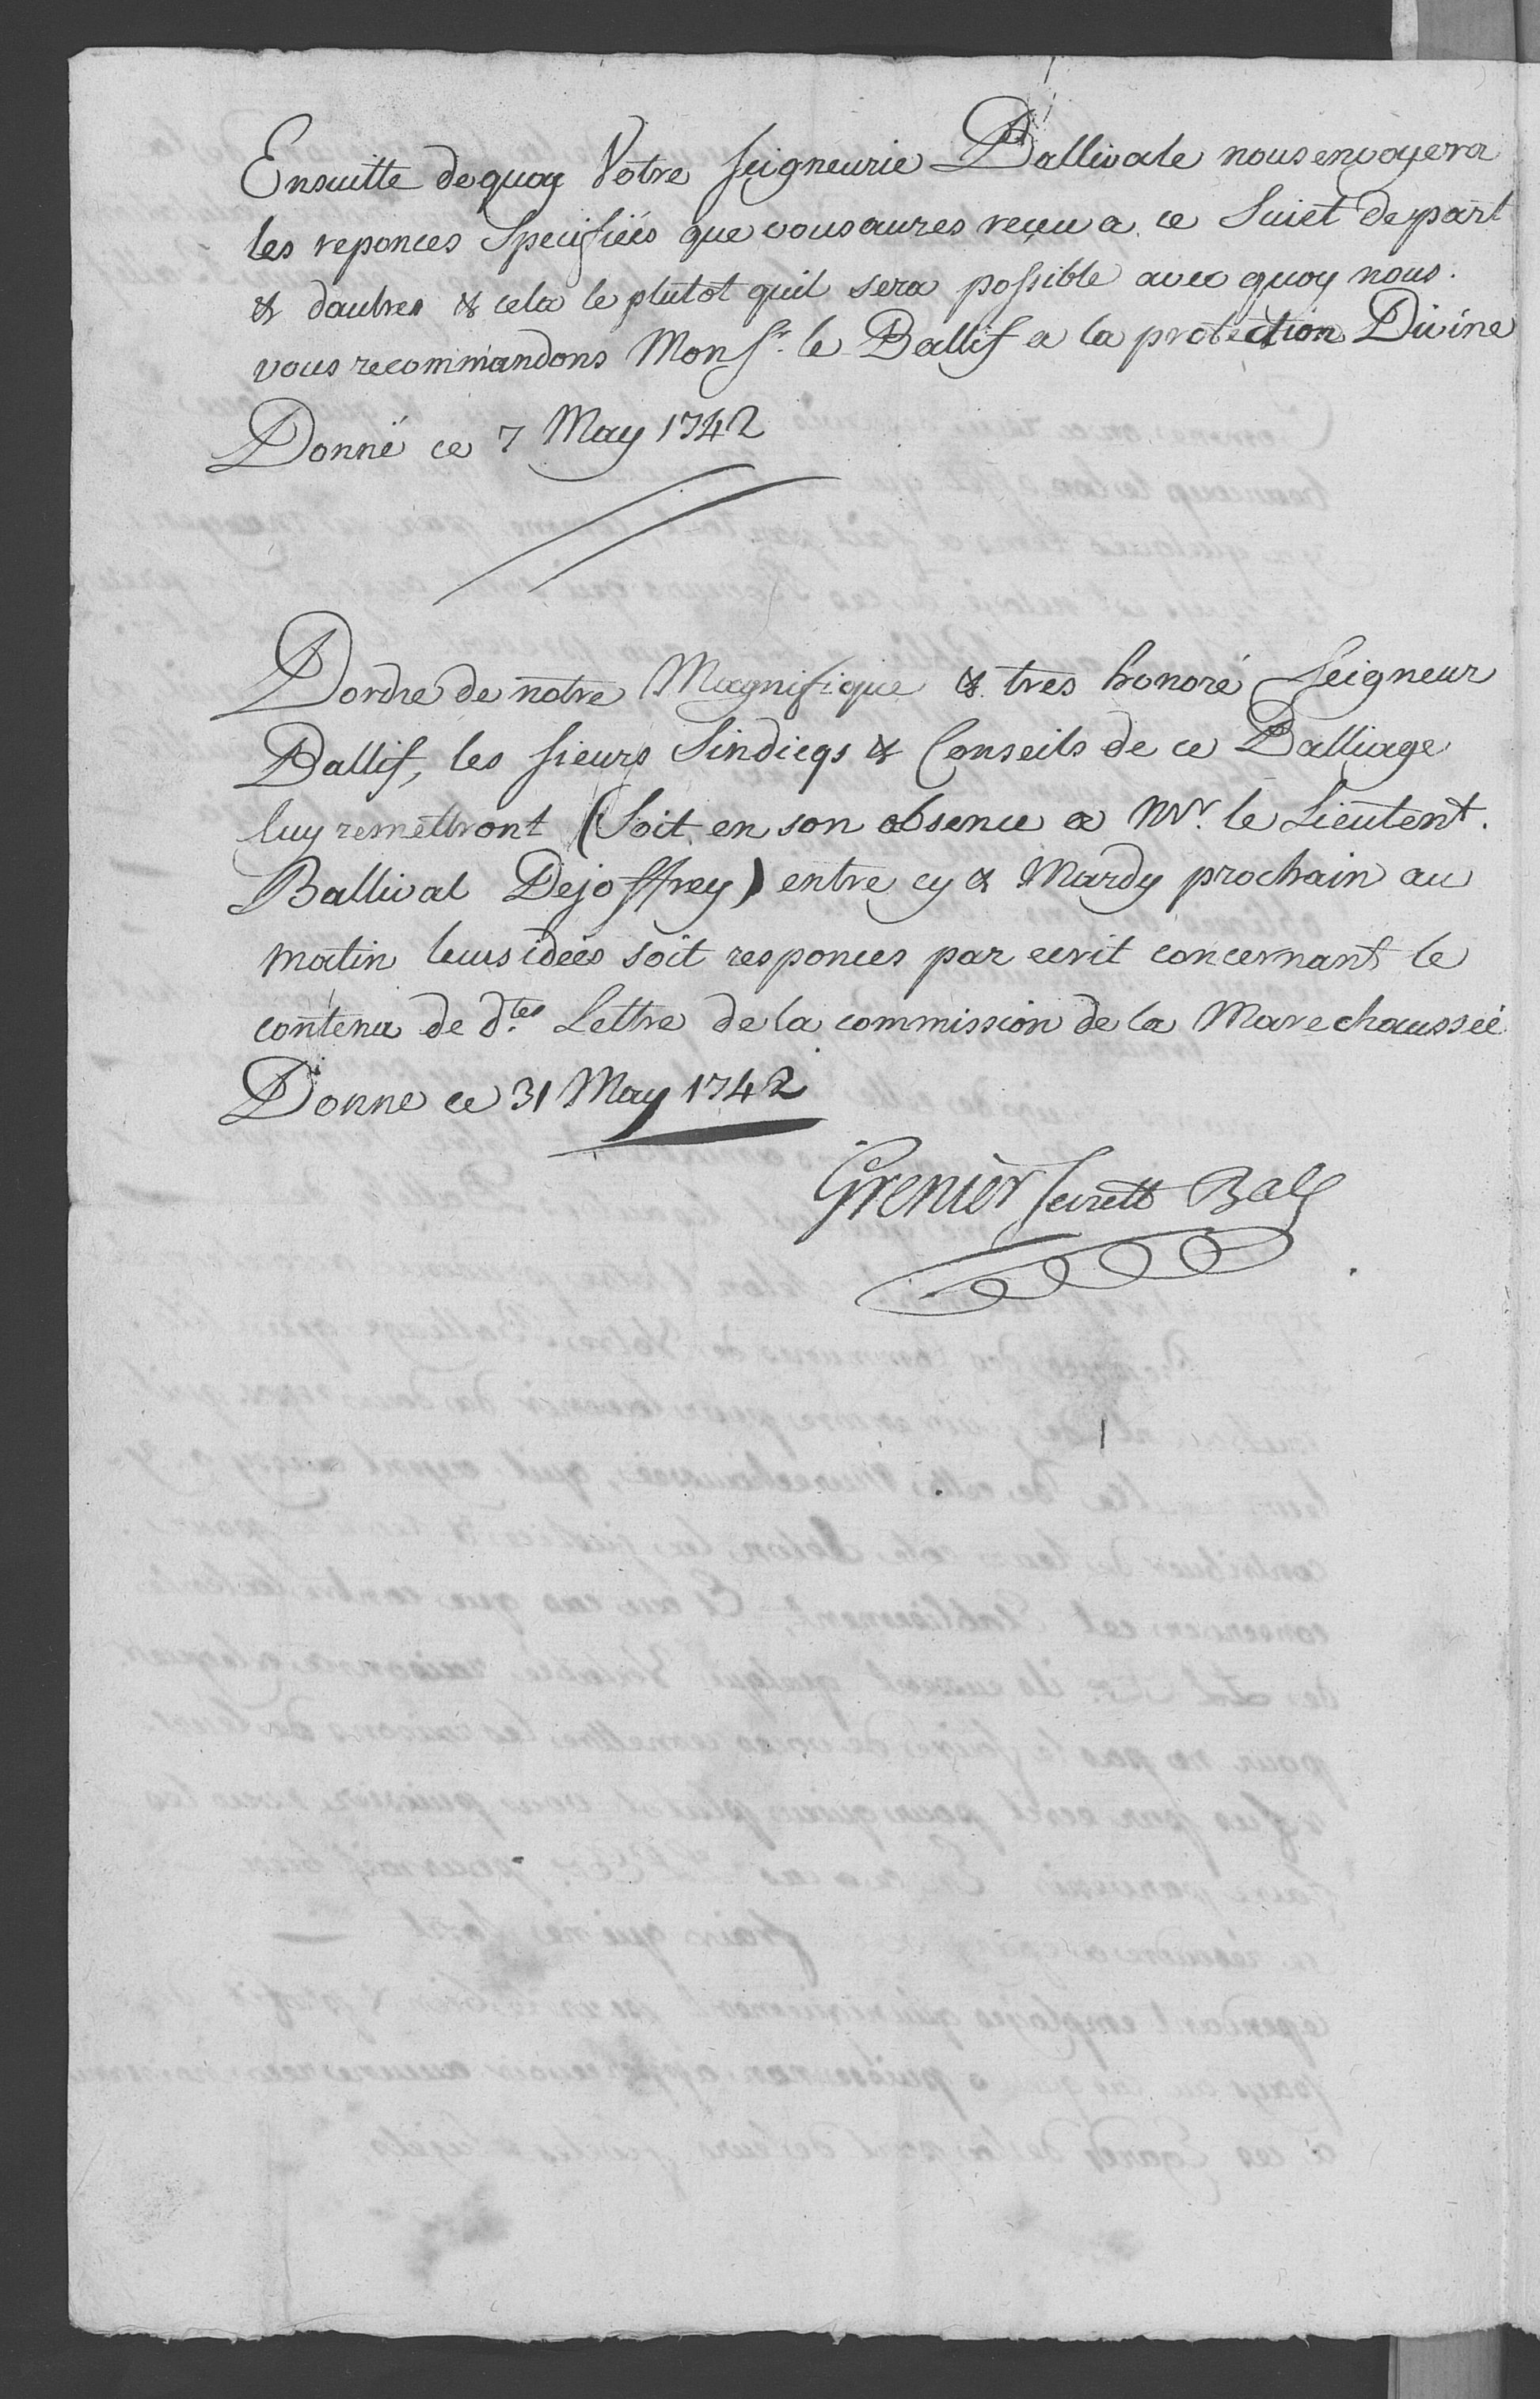 Ensuitte dequoy Votre seigneurie Ballivale nous envoyera
les reponces Specifiées que vous aures reçeu a ce Suiet de part
& dautres & cela le plutot quil sera possible avec quoy nous
vous recommandons Mons.r le Ballif a la protection Divine
Donné ce 7 May 1742
Dordre de notre Magnifique & tres honoré Seigneur
Ballif, les sieurs Sindicqs & Conseils de ce Balliage
luy remettront (Soit en son absence a Mr. le Lieutent.
Ballival Dejoffrey) entre cy & Mardy prochain au
matin leurs idées soit responces par ecrit concernant le
contenu de d.tes Lettre de la commission de la Marechaussée
Donne ce 31 May 1742
Grenier Secrett Bal